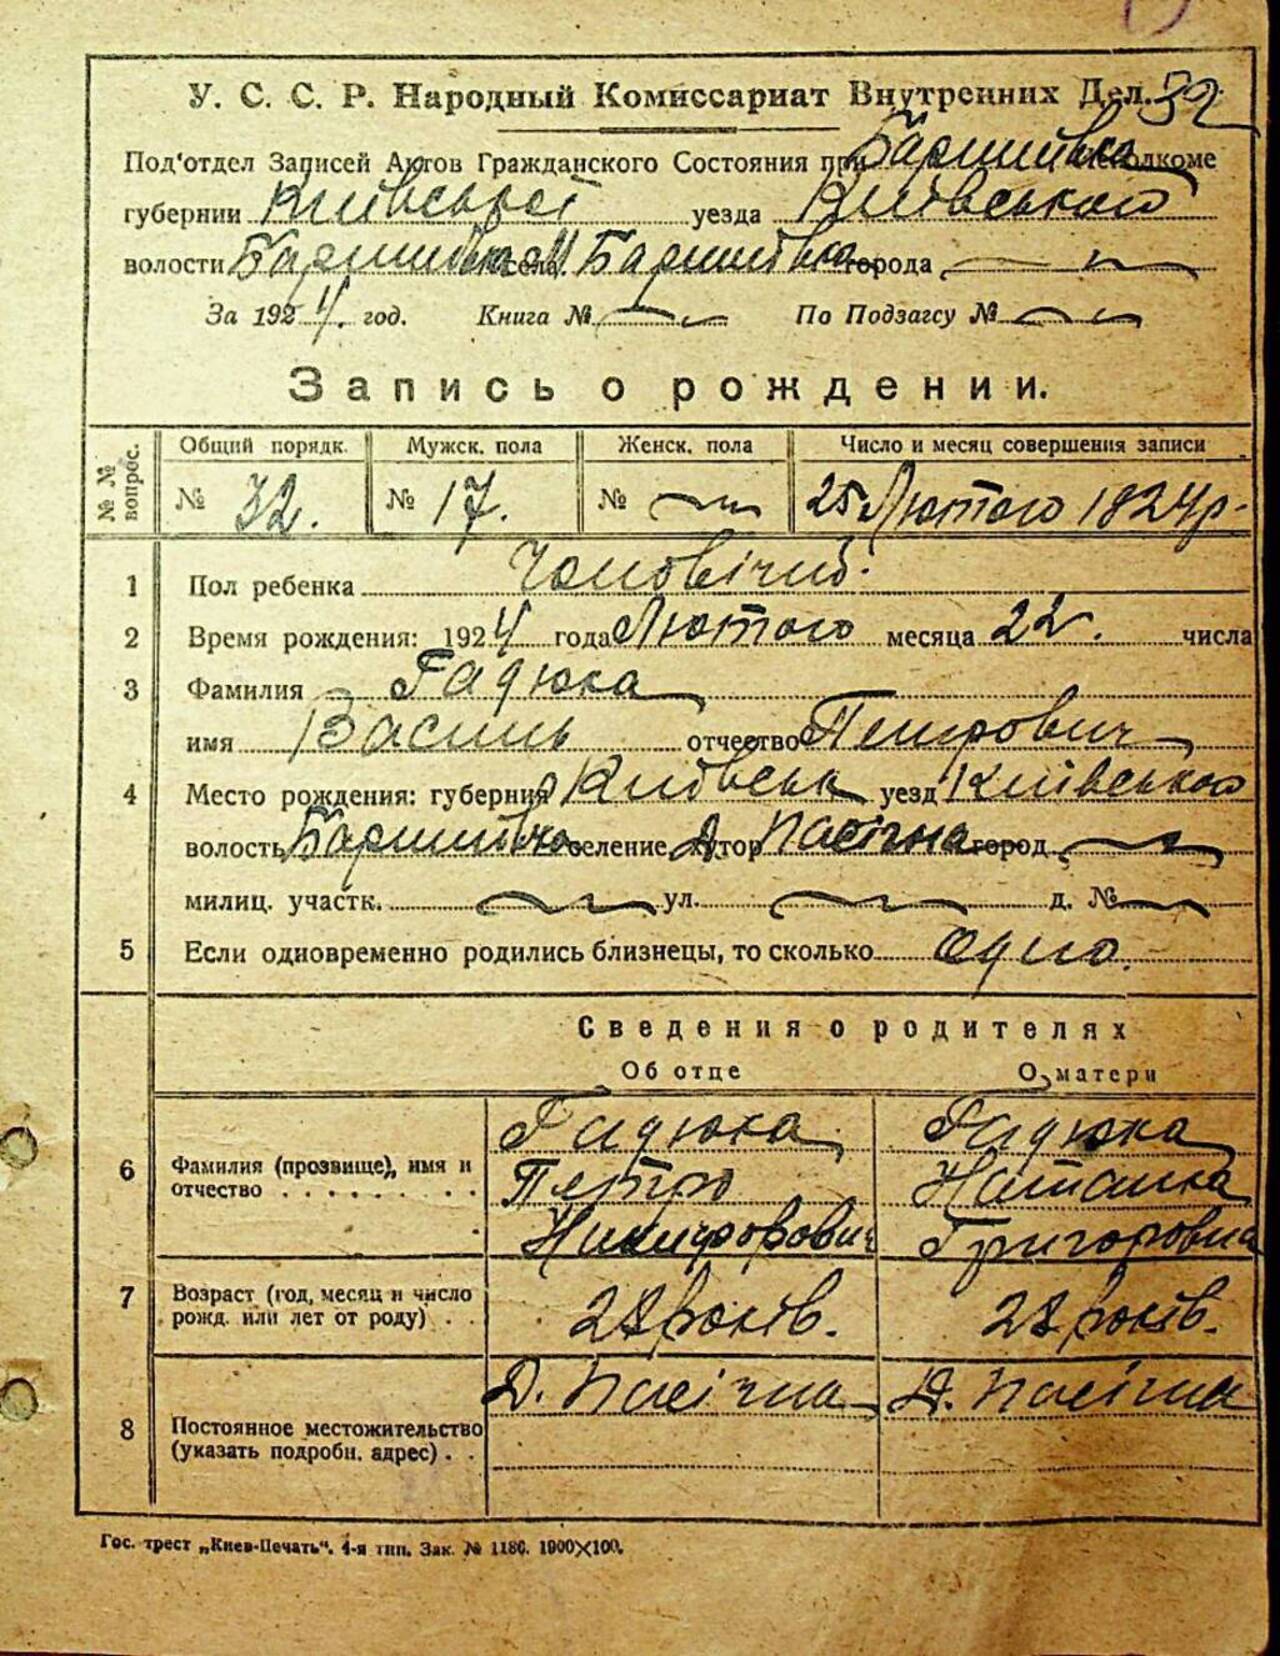 У. С. С. Р. Народный Комиссариат Внутренних Дел. 32
Под'отдел Записей Актов Гражданского Состояния при Баришівка исполкоме
губернии Київської уезда Київського
волости Баришівка села М. Баришівка города
За 1924 год. Книга № По Подзагсу №
Запись о рождении.
№№ вопрос. Общий порядк. Мужск. пола Женск. пола Число и месяц совершения записи
№ 32. № 17. № 25 Лютого 1824 р.
1 Пол ребенка Чоловічий.
2 Время рождения: 1924 года Лютого месяца 22. числа
3 Фамилия Гадюка
имя Василь отчество Петрович
4 Место рождения: губерния Київськ уезд Київського
волость Баришівка селение, хутор Д. Пасічна город
милиц. участк. ул. д. №
5 Если одновременно родились близнецы, то сколько одно.
Сведения о родителях
Об отце О матери
6 Фамилия (прозвище), имя и отчество Гадюка Гадюка
Петро Наталка
Никифорович Григоровна
7 Возраст (год, месяц и число рожд. или лет от роду) 28 років. 28 років.
8 Постоянное местожительство (указать подробн. адрес) Д. Пасічна Д. Пасічна
Гос. трест „Киев-Печать". 4-я тип. Зак. № 1186. 1000×100.